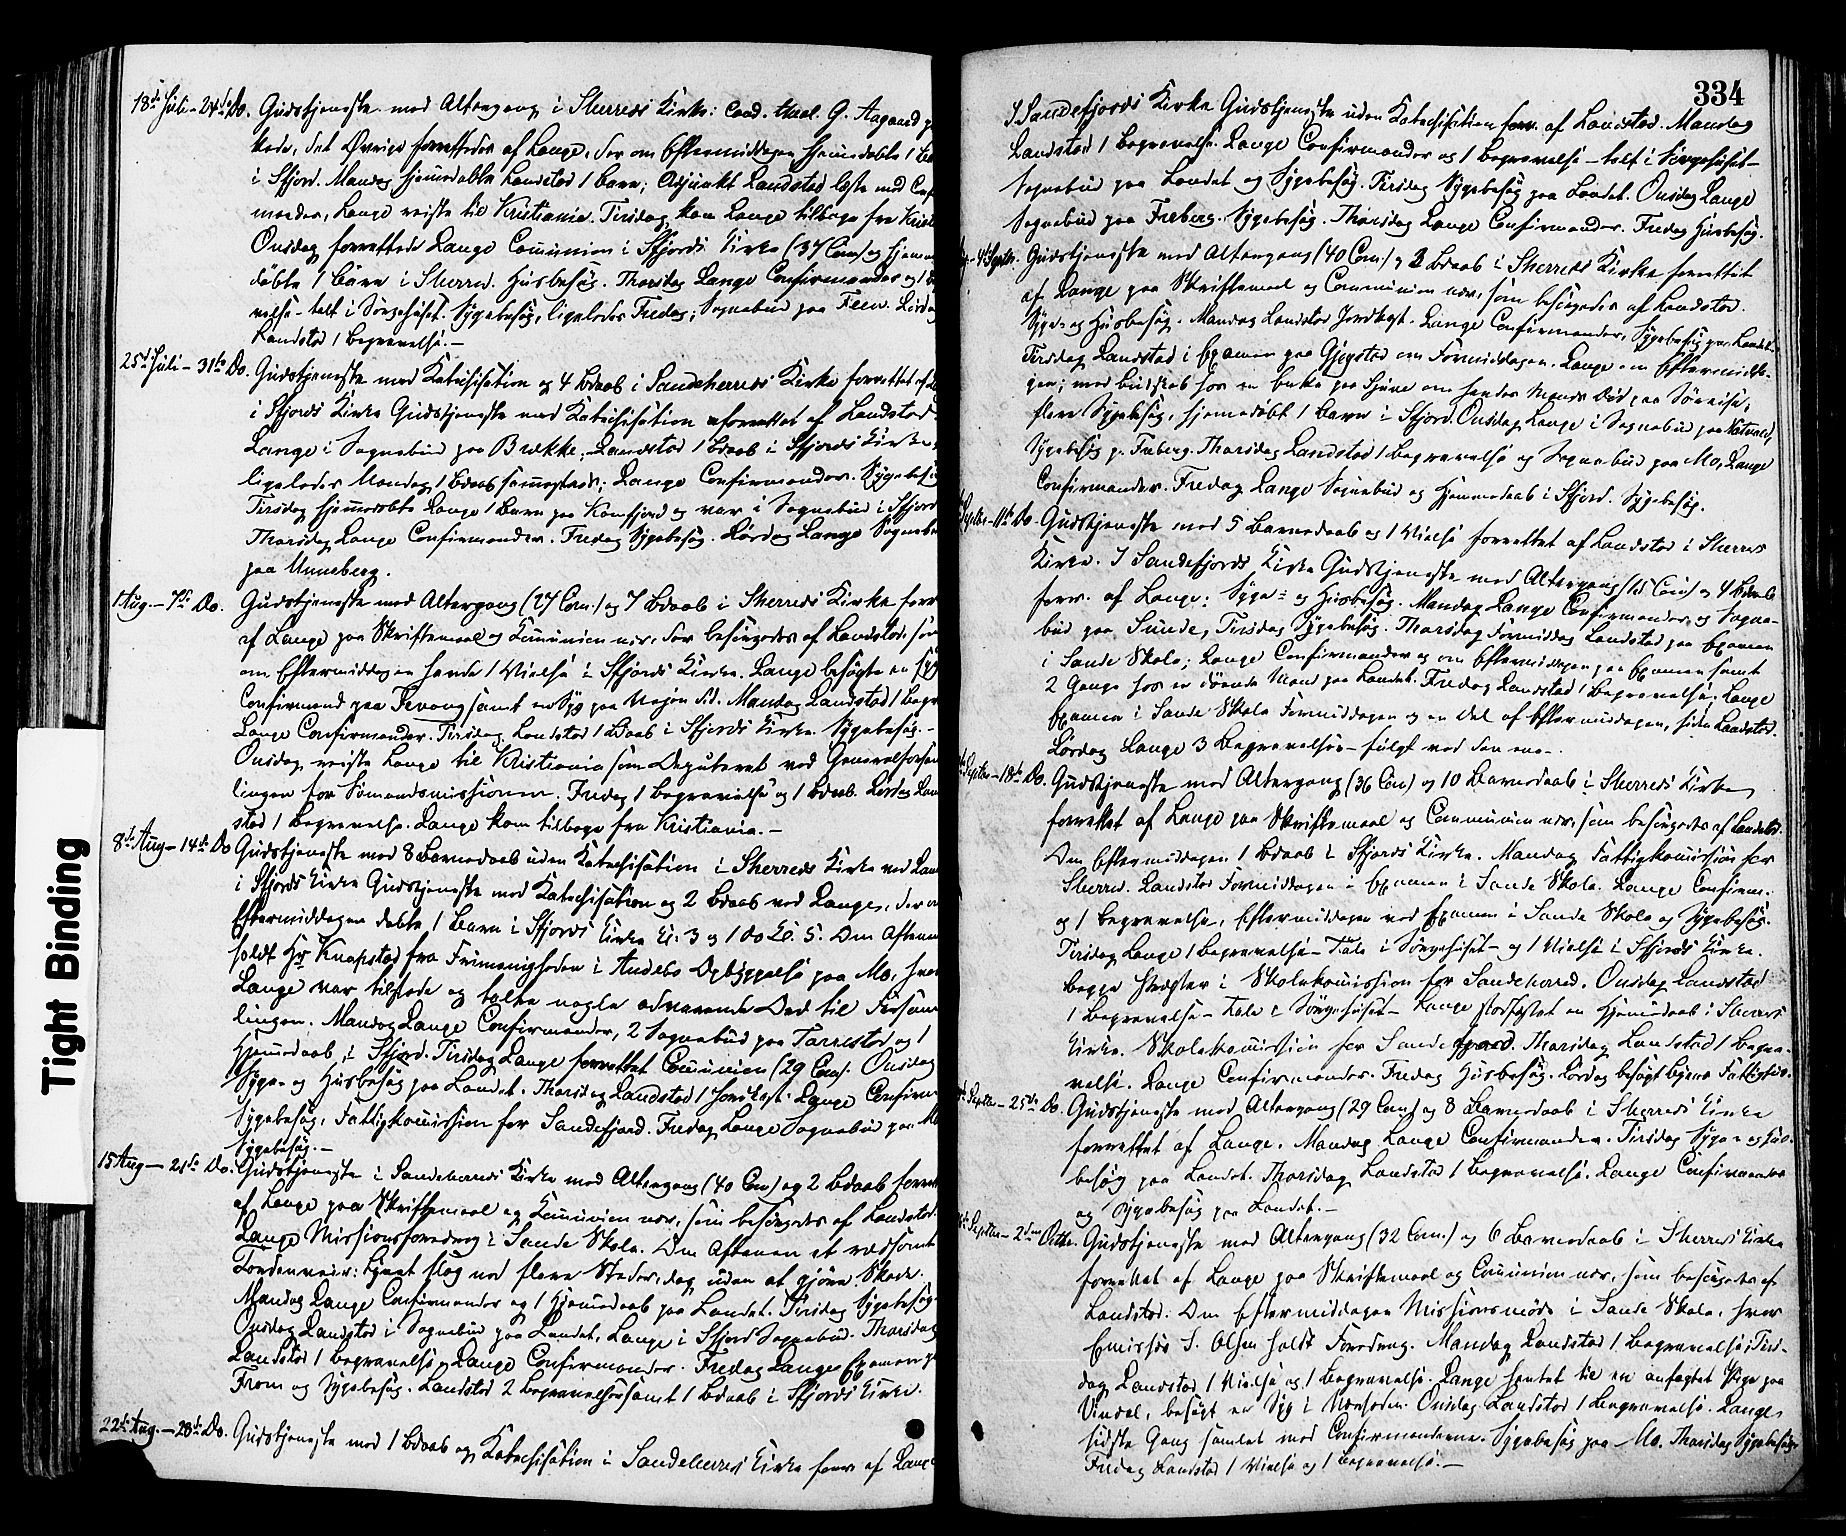 18de Juli – 24de Do. Gudstjeneste med Altergang i Sherreds Kirke: Cand. theol. G. Aagaard
kede, det Øvrige forrettedes af Lange, der om Eftermiddagen hjemmedøbte 1
i Sfjord. Mandag hjemmedøbte Landstad 1 Barn; Adjunkt Landstad læste med
manden, Lange reiste til Kristiania. Tirsdag kom Lange tilbage fra
Onsdag forrettede Lange Communion i Sfjords Kirke (37 Com) og hjemme
døbte 1 Barn i Sherred. Husbesøg. Thorsdag Lange Confirmander og 1
velse – talt i Sørgehuset. Sygebesøg, ligeledes Fredag; Sognebud paa Feen. Lørdag
Landstad 1 Begravelse. –
25de Juli – 31te Do. Gudstjeneste med Katechisation og 4 Bdaab i Sandeherreds Kirke forrettet af
i Sfjords Kirke Gudstjeneste med Katechisation forrettet af Landstad
Lange i Sognebud paa Brække, Landstad 1 Bdaab i Sfjords Kirke
ligeledes Mandag 1 Bdaab sammesteds; Lange Confirmander. Sygebesøg
Tirsdag hjemmedøbte Lange 1 Barn paa Kamfjord og var i Sognebud i Sfjord
Thorsdag Lange Confirmander. Fredag Sygebesøg. Lørdag Lange
paa Unneberg.
1 Aug. – 7de Do. Gudstjeneste med Altergang (27 Com.) og 7 Bdaab i Sherreds Kirke
af Lange paa Skriftemaal og Communion nær, der besørgedes af Landstad, som
om Eftermiddagen havde 1 Vielse i Sfjords Kirke. Lange besøgte en Syg
Confirmand paa samt en Syg paa Vejen did. Mandag Landstad 1
Lange Confirmander. Tirsdag Landstad 1 Bdaab i Sfjords Kirke. Sygebesøg. –
Onsdag reiste Lange til Kristiania som Deputeret ved Generalforsam
lingen for Sømandsmissionen. Fredag 1 Begravelse og 1 Bdaab. Lørdag Land
stad 1 Begravelse. Lange kom tilbage fra Kristiania. –
8de Aug – 14de Do Gudstjeneste med 8 Barnedaab uden Katechisation i Sherreds Kirke ved
i Sfjords Kirke Gudstjeneste med Katechisation og 2 Bdaab ved Lange, der
Eftermiddagen døbte 1 Barn i Sfjords Kirke Kl. 3 og 1 do Kl. 5. Om Aftenen
holdt Hr Knapstad fra Frimenigheden i Andebo Opbyggelse paa Mo, hvor
Lange var tilstede og talte nogle advarende Ord til Forsam
lingen. Mandag Lange Confirmander, 2 Sognebud paa Tarrestad og 1
Hjemmedaab i Sfjord. Tirsdag Lange forrettet Communion (29 Com). Onsdag
Syge- og Husbesøg paa Landet. Thorsdag Landstad 1 Jordkast. Lange
Sygebesøg, Fattigkommission for Sandefjord. Fredag Lange Sognebud paa
Sygebesøg. –
15 Aug – 21de Do. Gudstjeneste i Sandeherreds Kirke med Altergang (40 Com) og 2 Bdaab
af Lange paa Skriftemaal og Communion nær, som besørgedes af Landstad.
Lange Missionsforedrag i Sande Skole. Om Aftenen et voldsomt
Tordenveir: Lynet slog ned flere Steder, dog uden at gjøre Skade.
Mandag Lange Confirmander og 1 Hjemmedaab paa Landet. Tirsdag Sygebesøg.
Onsdag Landstad i Sognebud paa Landet, Lange i Sfjord Sognebud. Thorsdag
Landstad 1 Begravelse, Lange Confirmander. Fredag Lange Examen
Fron og Sygebesøg. Landstad 2 Begravelser samt 1 Bdaab i Sfjords Kirke.
22de Aug. – 28de Do. Gudstjeneste med 1 Bdaab og Katechisation i Sandeherreds Kirke forr. af
334
I Sandefjords Kirke Gudstjeneste uden Katechisation forr. af Landstad. Mandag
Landstad 1 Begravelse. Lange Confirmander og 1 Begravelse – talt i Sørgehuset –
Sognebud paa Landet og Sygebesøg. Tirsdag Sygebesøg paa Landet. Onsdag Lange
Sognebud paa Freberg. Sygebesøg. Thorsdag Lange Confirmander. Fredag Husbesøg.
4de Septbr. Gudstjeneste med Altergang (40 Com.) og 3 Bdaab i Sherreds Kirke forrettet
af Lange paa Skriftemaal og Communion nær, som besørgedes af Landstad.
Syge- og Husbesøg. Mandag Landstad Jordkast. Lange Confirmander, Sygebesøg paa Landet.
Tirsdag Landstad i Examen paa Gjegstad om Formiddagen. Lange om Eftermidda-
gen; med Budskab hos en Enke paa om hendes Mands Død paa Søreise,
flere Sygebesøg, hjemmedøbt 1 Barn i Sfjord. Onsdag Lange i Sognebud paa
Sygebesøg p. Freberg. Thorsdag Landstad 1 Begravelse og Sognebud paa Mo, Lange
Confirmander. Fredag Lange Sognebud og Hjemmedaab i Sfjord. Sygebesøg.
Septbr – 11te Do. Gudstjeneste med 5 Barnedaab og 1 Vielse forrettet af Landstad i Sherreds
Kirke. I Sandefjords Kirke Gudstjeneste med Altergang (15 Com) og 4 Bdaab
forr. af Lange. Syge- og Husbesøg. Mandag Lange Confirmander, og Sogne-
bud paa Sunde, Tirsdag Sygebesøg. Thorsdag Formiddag Landstad paa Examen
i Sande Skole; Lange Confirmander og om Eftermiddagen paa Examen samt
2 Gange hos en døende Mand paa Landet. Fredag Landstad 1 Begravelse; Lange
Examen i Sande Skole Formiddagen og en Del af Eftermiddagen, siden Landstad.
Lørdag Lange 3 Begravelser – fulgt ved den ene –.
Septbr – 18de Do. Gudstjeneste med Altergang (36 Com) og 10 Barnedaab i Sherreds Kirke
forrettet af Lange paa Skriftemaal og Communion nær, som besørgedes af Landstad.
Om Eftermiddagen 1 Bdaab i Sfjords Kirke. Mandag Fattigkommission for
Sherred. Landstad Formiddagen i Examen i Sande Skole. Lange Confirm.
og 1 Begravelse, Eftermiddagen ved Examen i Sande Skole og Sygebesøg.
Tirsdag Lange 1 Begravelse – Tale i Sørgehuset – og 1 Vielse i Sfjords Kirke.
begge Præster i Skolekommission for Sandeherred. Onsdag Landstad
1 Begravelse – Tale i Sørgehuset – Lange stadfæstet en Hjemmedaab i Sherreds
Kirke. Skolekommission for Sandefjord. Thorsdag Landstad 1 Begra-
velse. Lange Confirmander. Fredag Husbesøg. Lørdag besøgt Byens Fattighus.
Septbr – 25de Do. Gudstjeneste med Altergang (29 Com) og 8 Barnedaab i Sherreds Kirke
forrettet af Lange. Mandag Lange Confirmander. Tirsdag Syge- og Hus-
besøg paa Landet. Thorsdag Landstad 1 Begravelse. Lange Confirmander
og Sygebesøg paa Landet. –
Septbr – 2den Octbr. Gudstjeneste med Altergang (32 Com.) og 6 Barnedaab i Sherreds Kirke
forrettet af Lange paa Skriftemaal og Communion nær, som besørgedes af
Landstad. Om Eftermiddagen Missionsmøde i Sande Skole, hvor
Emissær S. Olsen holdt Foredrag. Mandag Landstad 1 Begravelse; Tirs-
dag Landstad 1 Vielse og 1 Begravelse. Lange hentet til en anfægtet Pige paa
Vindal, besøgt en Syg i Nærheden. Onsdag Landstad 1 Begravelse. Lange
sidste Gang samlet med Confirmanderne. Sygebesøg paa Mo. Thorsdag Sygebesøg.
Fredag Landstad 1 Vielse og 1 Begravelse. –
Tight Binding